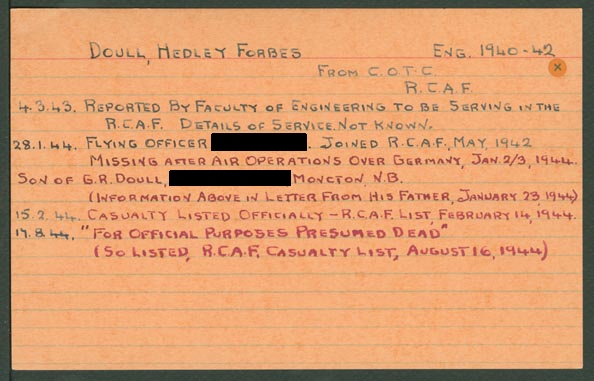 DOULL, HEDLEY FORBES ENG. 1940-42
FROM C.O.T.C.
R.C.A.F.
4.3.43. REPORTED BY FACULTY OF ENGINEERING TO BE SERVING IN THE
R.C.A.F. DETAILS OF SERVICE NOT KNOWN.
28.1.44. FLYING OFFICER . JOINED R.C.A.F., MAY, 1942
MISSING AFTER AIR OPERATIONS OVER GERMANY, JAN. 2/3, 1944.
SON OF G.R. DOULL, MONCTON, N.B.
(INFORMATION ABOVE IN LETTER FROM HIS FATHER, JANUARY 23, 1944)
15.2.44. CASUALTY LISTED OFFICIALLY - R.C.A.F. LIST, FEBRUARY 14, 1944.
17.8.44. "FOR OFFICIAL PURPOSES PRESUMED DEAD"
(SO LISTED, R.C.A.F. CASUALTY LIST, AUGUST 16, 1944)